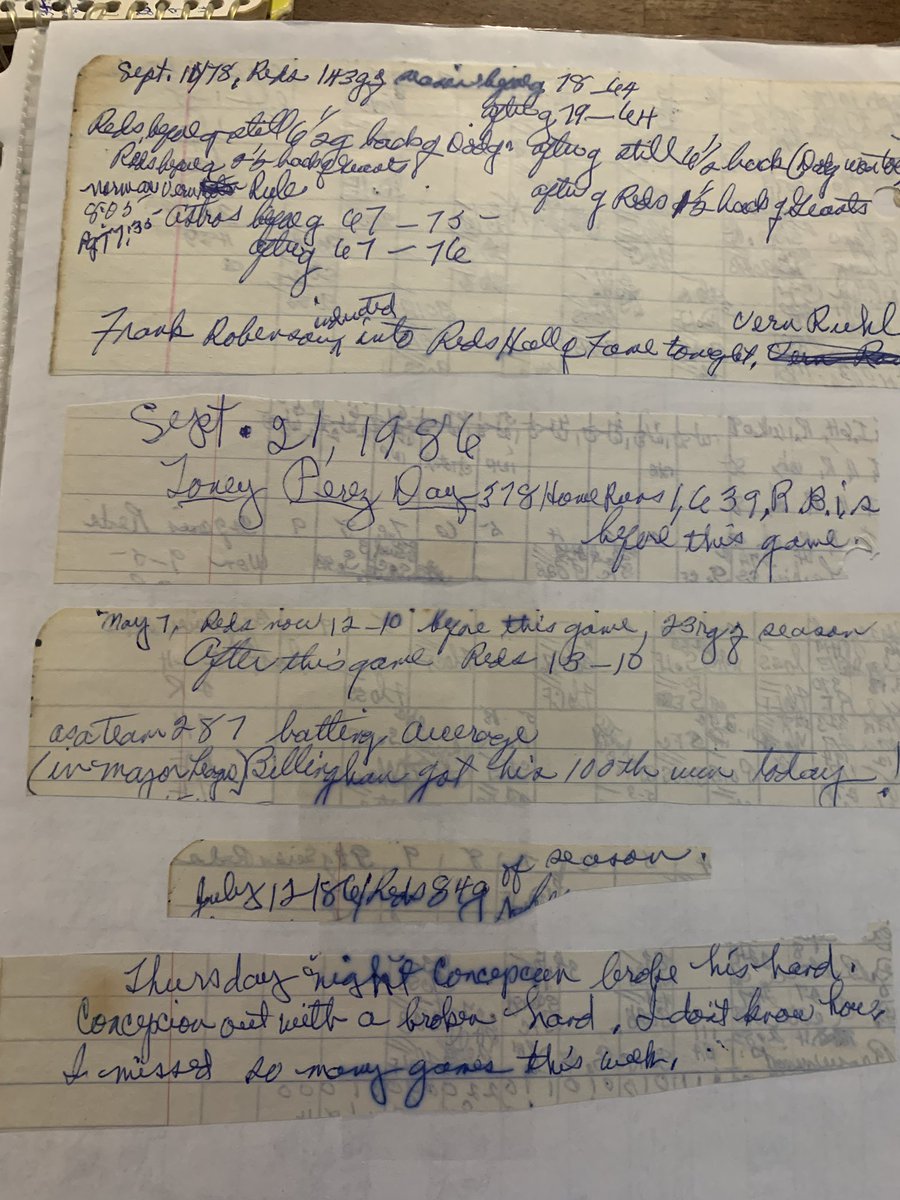 Sept. 11/78, Reds 143g of season before g 78-64
after g 79-64
Reds before g still 6 1/2 g back of Dodg. after g still 6 1/2 back (Dodg won
Reds before g 2 1/2 back of Giants
after g Reds 1 1/2 back of Giants
norman Vern Rule
8:05 - Astros before g 67-75-
7:35 after g 67-76
Frank Robinson inducted into Reds Hall of Fame tonight, Vern Ruhl
Sept. 21, 1986
Toney Perez Day - 378 Home Runs 1,639, R.B.i,s
before this game.
May 7, Reds now 12-10 before this game, 23rg of season
After this game Reds 13-10
as a team 287 batting average
(in major Legs) Billingham got his 100th win today!
July 12-86/Reds 84g of season.
Thursday night Concepcion broke his hand.
Concepcion out with a broken hand. I don't know how,
I missed so many games this week.